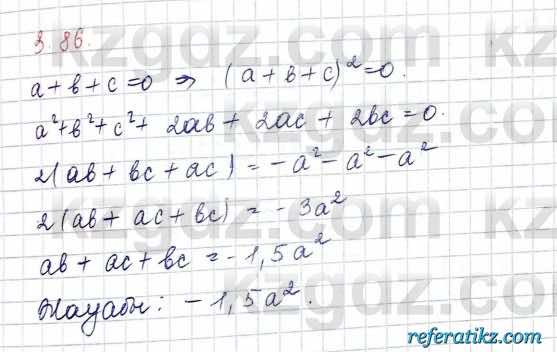 3.86.
a+b+c=0 ⇒ (a+b+c)²=0.
a²+b²+c²+ 2ab + 2ac + 2bc = 0.
2(ab + bc + ac) = -a² - a² - a²
2(ab + ac + bc) = - 3a²
ab + ac + bc = - 1,5a²
Жауабы: - 1,5a².
kzgdz.com
referatikz.com